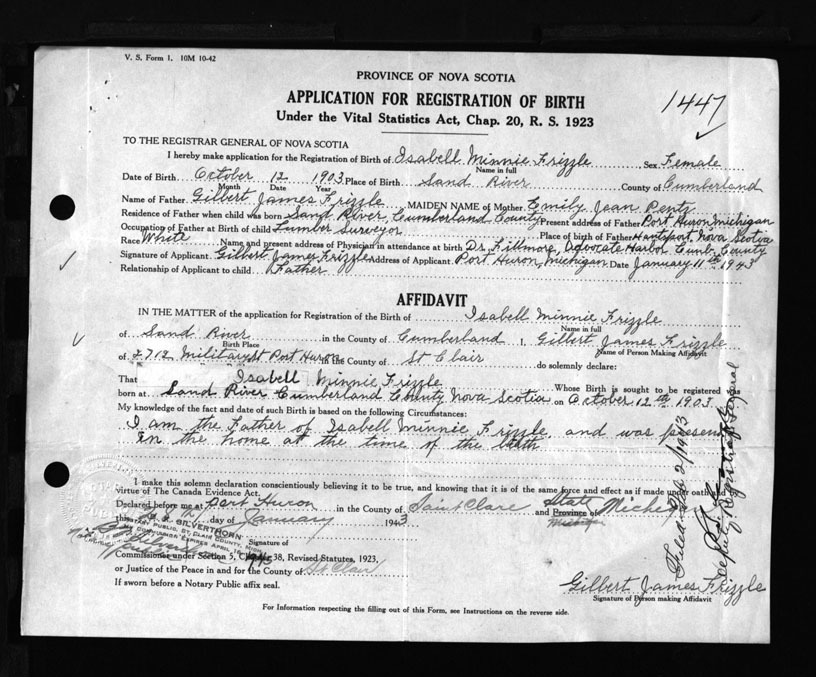 V. S. Form 1. 10M 10-42
PROVINCE OF NOVA SCOTIA
APPLICATION FOR REGISTRATION OF BIRTH
1447
Under the Vital Statistics Act, Chap. 20, R. S. 1923
TO THE REGISTRAR GENERAL OF NOVA SCOTIA
I hereby make application for the Registration of Birth of Isabell Minnie Frizzle Sex Female
Name in full
Date of Birth October 12 1903 Place of Birth Sand River County of Cumberland
Month Date Year
Name of Father Gilbert James Frizzle MAIDEN NAME of Mother Emily Jean Pentz
Residence of Father when child was born Sand River, Cumberland County Present address of Father Port Huron Michigan
Occupation of Father at Birth of child Lumber Surveyor Place of birth of Father Hantsport, Nova Scotia
Race White Name and present address of Physician in attendance at birth Dr. Fillmore, Advocate Harbor Cumb. County
Signature of Applicant Gilbert James Frizzle Address of Applicant Port Huron, Michigan Date January 11th 1943
Relationship of Applicant to child Father
AFFIDAVIT
IN THE MATTER of the application for Registration of the Birth of Isabell Minnie Frizzle
Name in full
of Sand River in the County of Cumberland I, Gilbert James Frizzle
Birth Place Name of Person Making Affidavit
of 2712 Military St Port Huron in the County of St Clair do solemnly declare:
That Isabell Minnie Frizzle Whose Birth is sought to be registered was
born at Sand River Cumberland County Nova Scotia on October 12th 1903
My knowledge of the fact and date of such Birth is based on the following Circumstances:
I am the Father of Isabell Minnie Frizzle, and was present
in the home at the time of the birth
I make this solemn declaration conscientiously believing it to be true, and knowing that it is of the same force and effect as if made under oath and
virtue of The Canada Evidence Act.
Declared before me at Port Huron in the County of Saint Clare and Province of State Michigan
this day of January 1943
SILVERTHORN
NOTARY PUBLIC, ST. CLAIR COUNTY, MICH.
COMMISSION EXPIRES APRIL
Signature of
Commissioner under Section 5, Chapter 38, Revised Statutes, 1923,
or Justice of the Peace in and for the County of St Clair
If sworn before a Notary Public affix seal.
Gilbert James Frizzle
Signature of Person making Affidavit
For Information respecting the filling out of this Form, see Instructions on the reverse side.
Filed Feb 2/1943
Deputy Registrar General